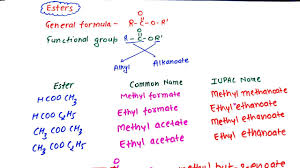 Esters
O
General formula - R-C-O-R'
O
Functional group R-C-OR'
Alkyl Alkanoate
Ester Common Name IUPAC Name
HCOO CH3 Methyl formate Methyl methanoate
HCOO C2H5 Ethyl formate Ethyl ethanoate
CH3 COO CH3 Methyl acetate Methyl ethanoate
CH3 COO C2H5 Ethyl acetate Ethyl ethanoate
O